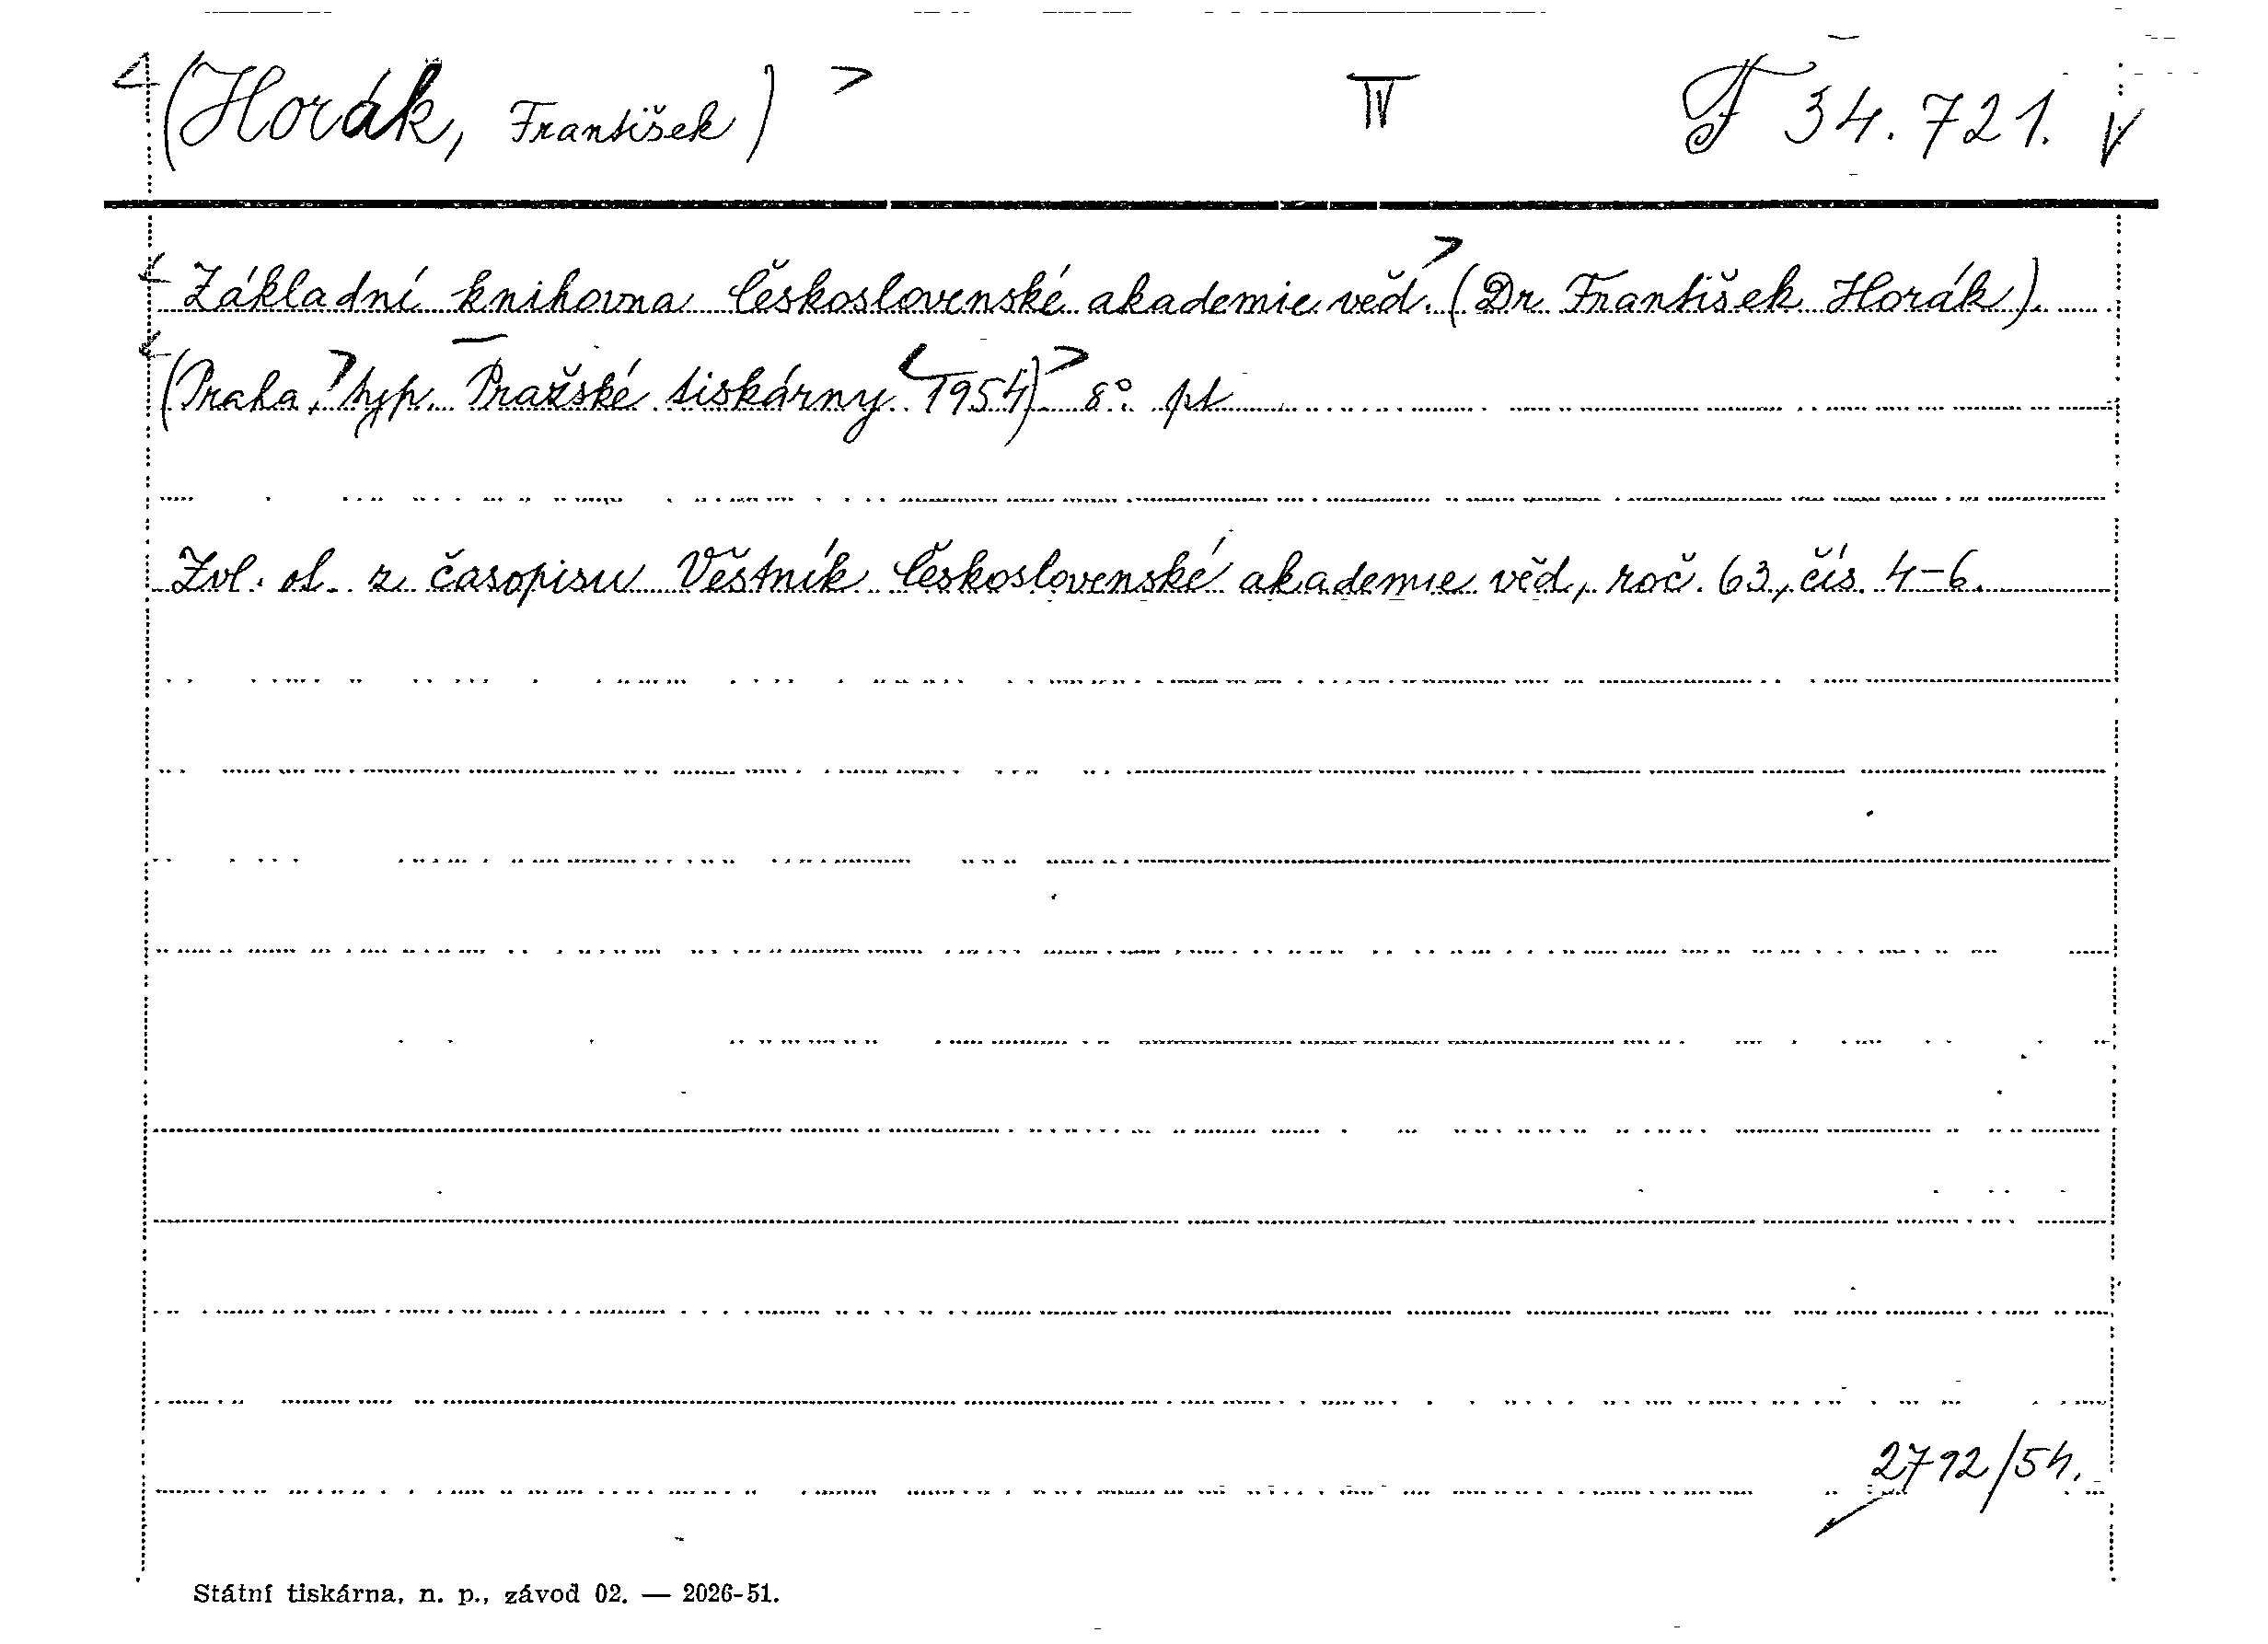 (Horák, František) IV F 34.721.
Základní knihovna Československé akademie věd. (Dr František Horák).
(Praha, typ. Pražské tiskárny 1954) 8° pt
Zvl. ot. z časopisu Věstník Československé akademie věd, roč. 63, čís. 4-6.
2792/54.
Státní tiskárna, n. p., závod 02. — 2026-51.